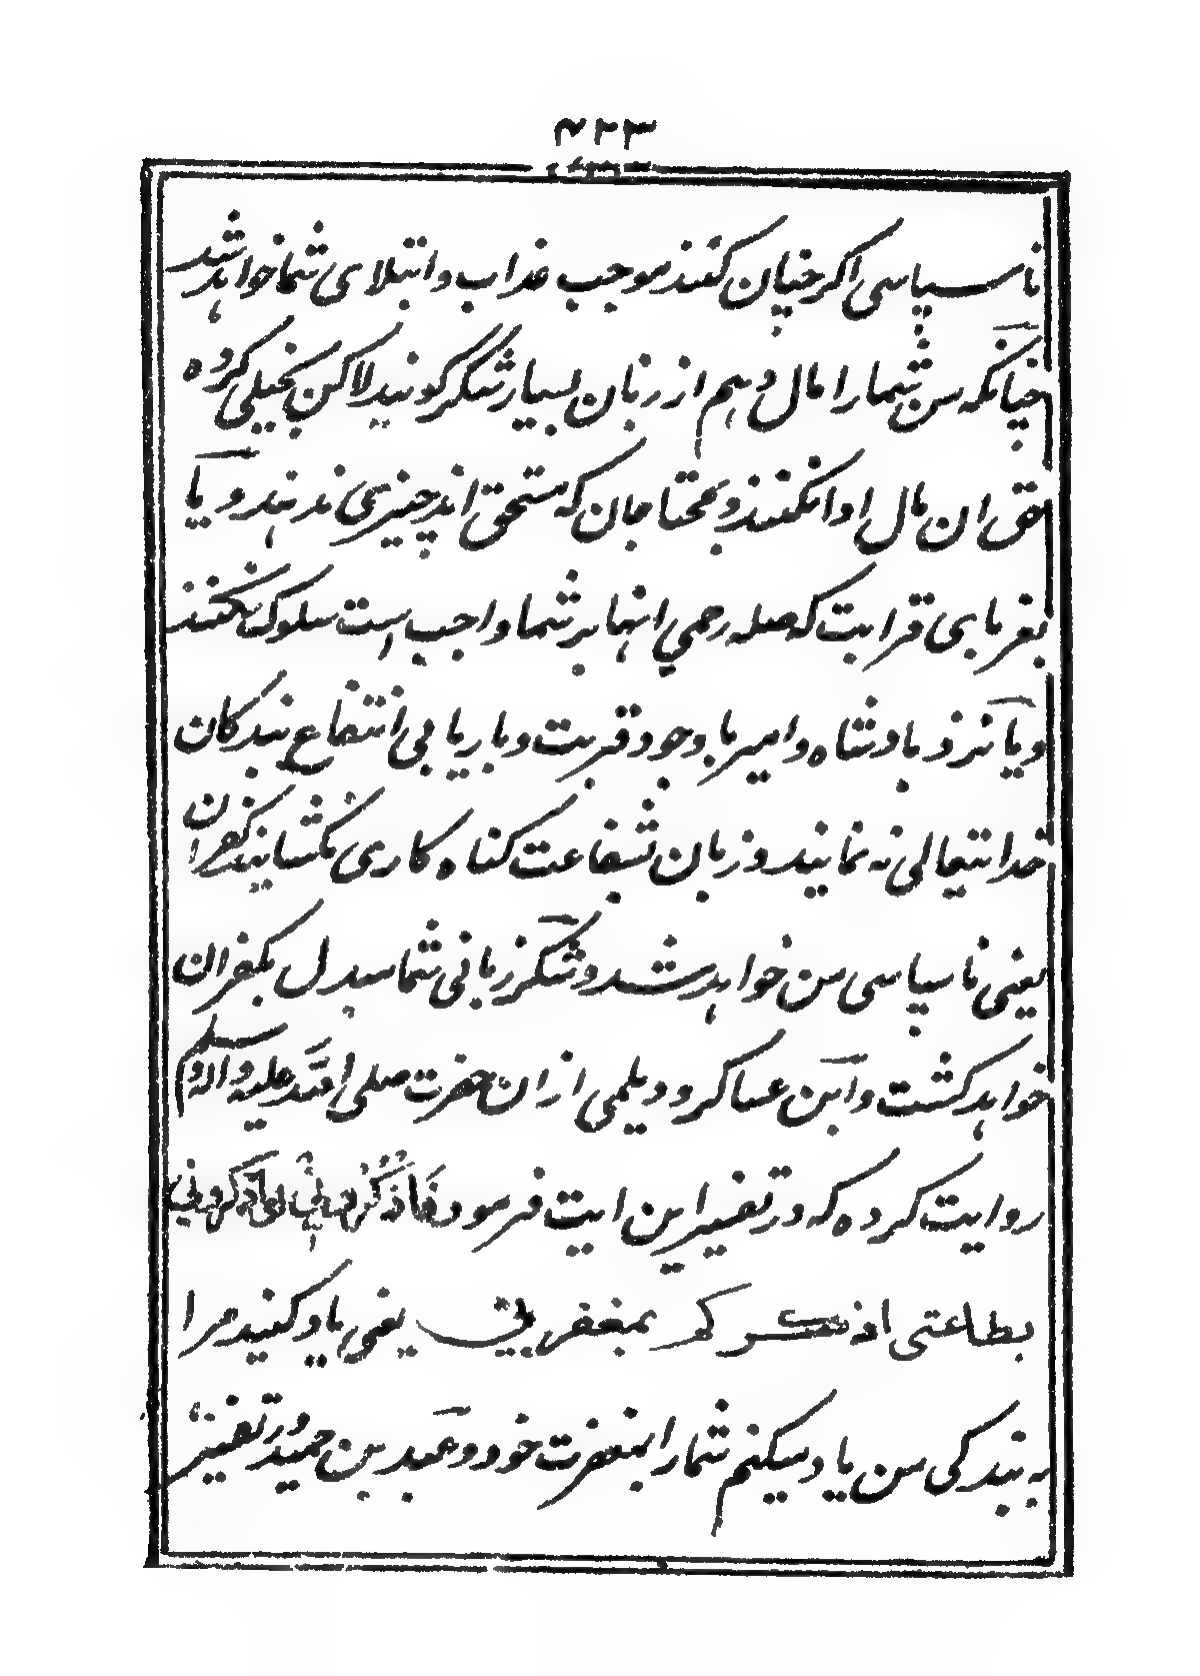 ۴۲۳
ناسپاسی اکر چنان کنند موجب عذاب وابتلای شما خواهد شد
چنانکه من شما را مال دهم از زبان بسیار شکر کویند لاکن بخیلی کرده
حق ان مال ادا نکنند و بمحتاجان که مستحق اند چیزی ندهند و یا
بغربای قرابت که صله رحمی انها بر شما واجب است سلوک نکنند
ویا نزد بادشاه وامیر با وجود قربت وباریابی انتفاع بندکان
خدا تعالی نه نمایند و زبان شفاعت کناه کاری نکشایند کفران
یعنی ناسپاسی من خواهد شد و شکر زبانی شما مبدل بکفران
خواهد کشت وابن عساکر و دیلمی از ان حضرت صلی الله علیه واله وسلم
روایت کرده که در تفسیر این ایت فرمود فاذکرونی
بطاعتی اذکرکم بمغفرتی یعنی یاد کنید مرا
به بندکی من یاد میکنم شما را بمغفرت خود و عبد بن حمید در تفسیر